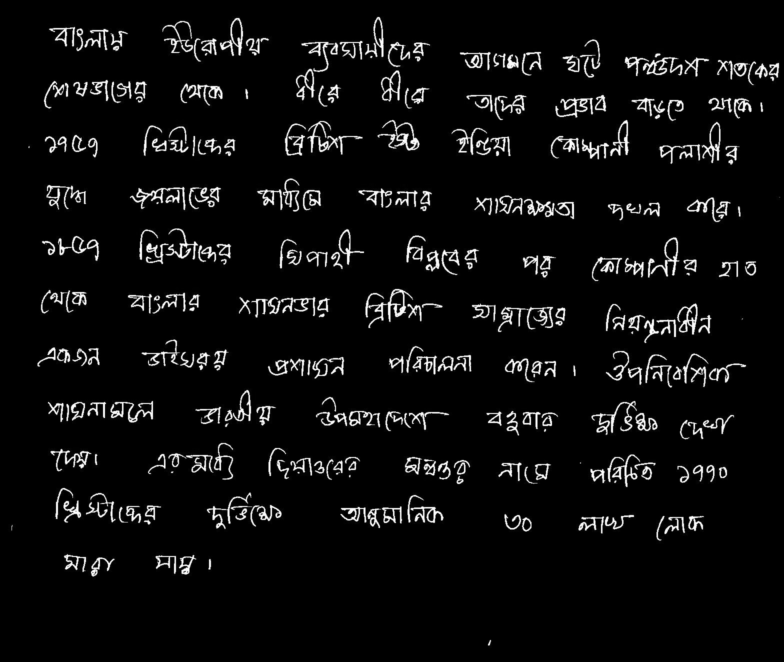 বাংলায় ইউরোপীয় ব্যবসায়ীদের আগমনে ঘটে পঞ্চদশ শতকের
শেষভাগের থেকে। ধীরে ধীরে তাদের প্রভাব বাড়তে থাকে।
১৭৫৭ খ্রিস্টাব্দের ব্রিটিশ ইস্ট ইন্ডিয়া কোম্পানী পলাশীর
যুদ্ধে জয়লাভের মাধ্যমে বাংলার শাসনক্ষমতা দখল করে।
১৮৫৭ খ্রিস্টাব্দের সিপাহী বিপ্লবের পর কোম্পানীর হাত
থেকে বাংলার শাসনভার ব্রিটিশ সাম্রাজ্যের নিয়ন্ত্রনাধীন
একজন ভাইসরয় প্রশাসন পরিচালনা করেন। ঔপনিবেশিক
শাসনামলে ভারতীয় উপমহাদেশে বহুবার দুর্ভিক্ষ দেখা
দেয়। এরমধ্যে ছিয়াত্তরের মন্বন্তর নামে পরিচিত ১৭৭০
খ্রিস্টাব্দের দুর্ভিক্ষে আনুমানিক ৩০ লাখ লোক
মারা যায়।